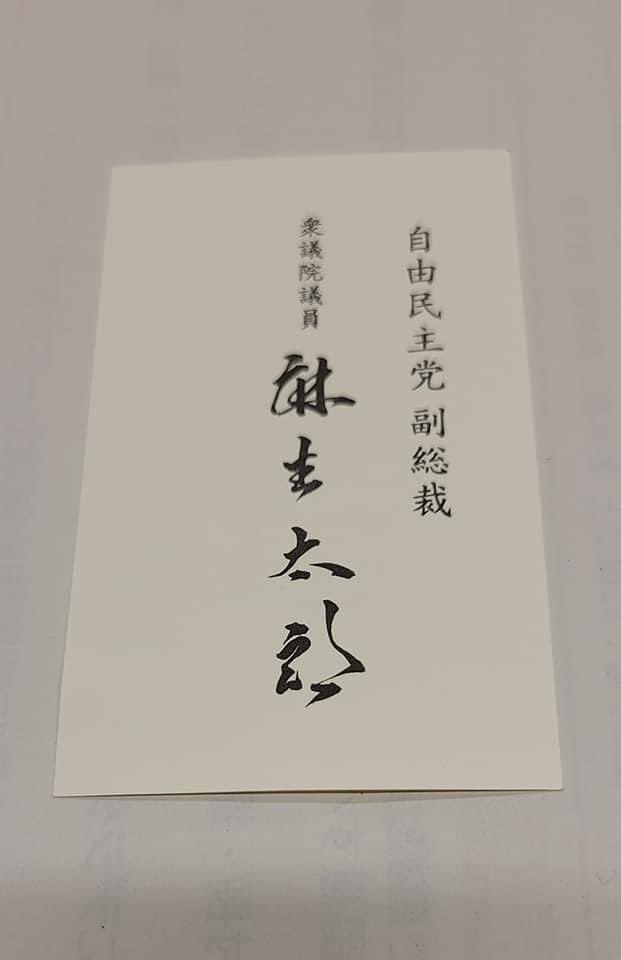 自由民主党 副総裁
衆議院議員 麻生太郎